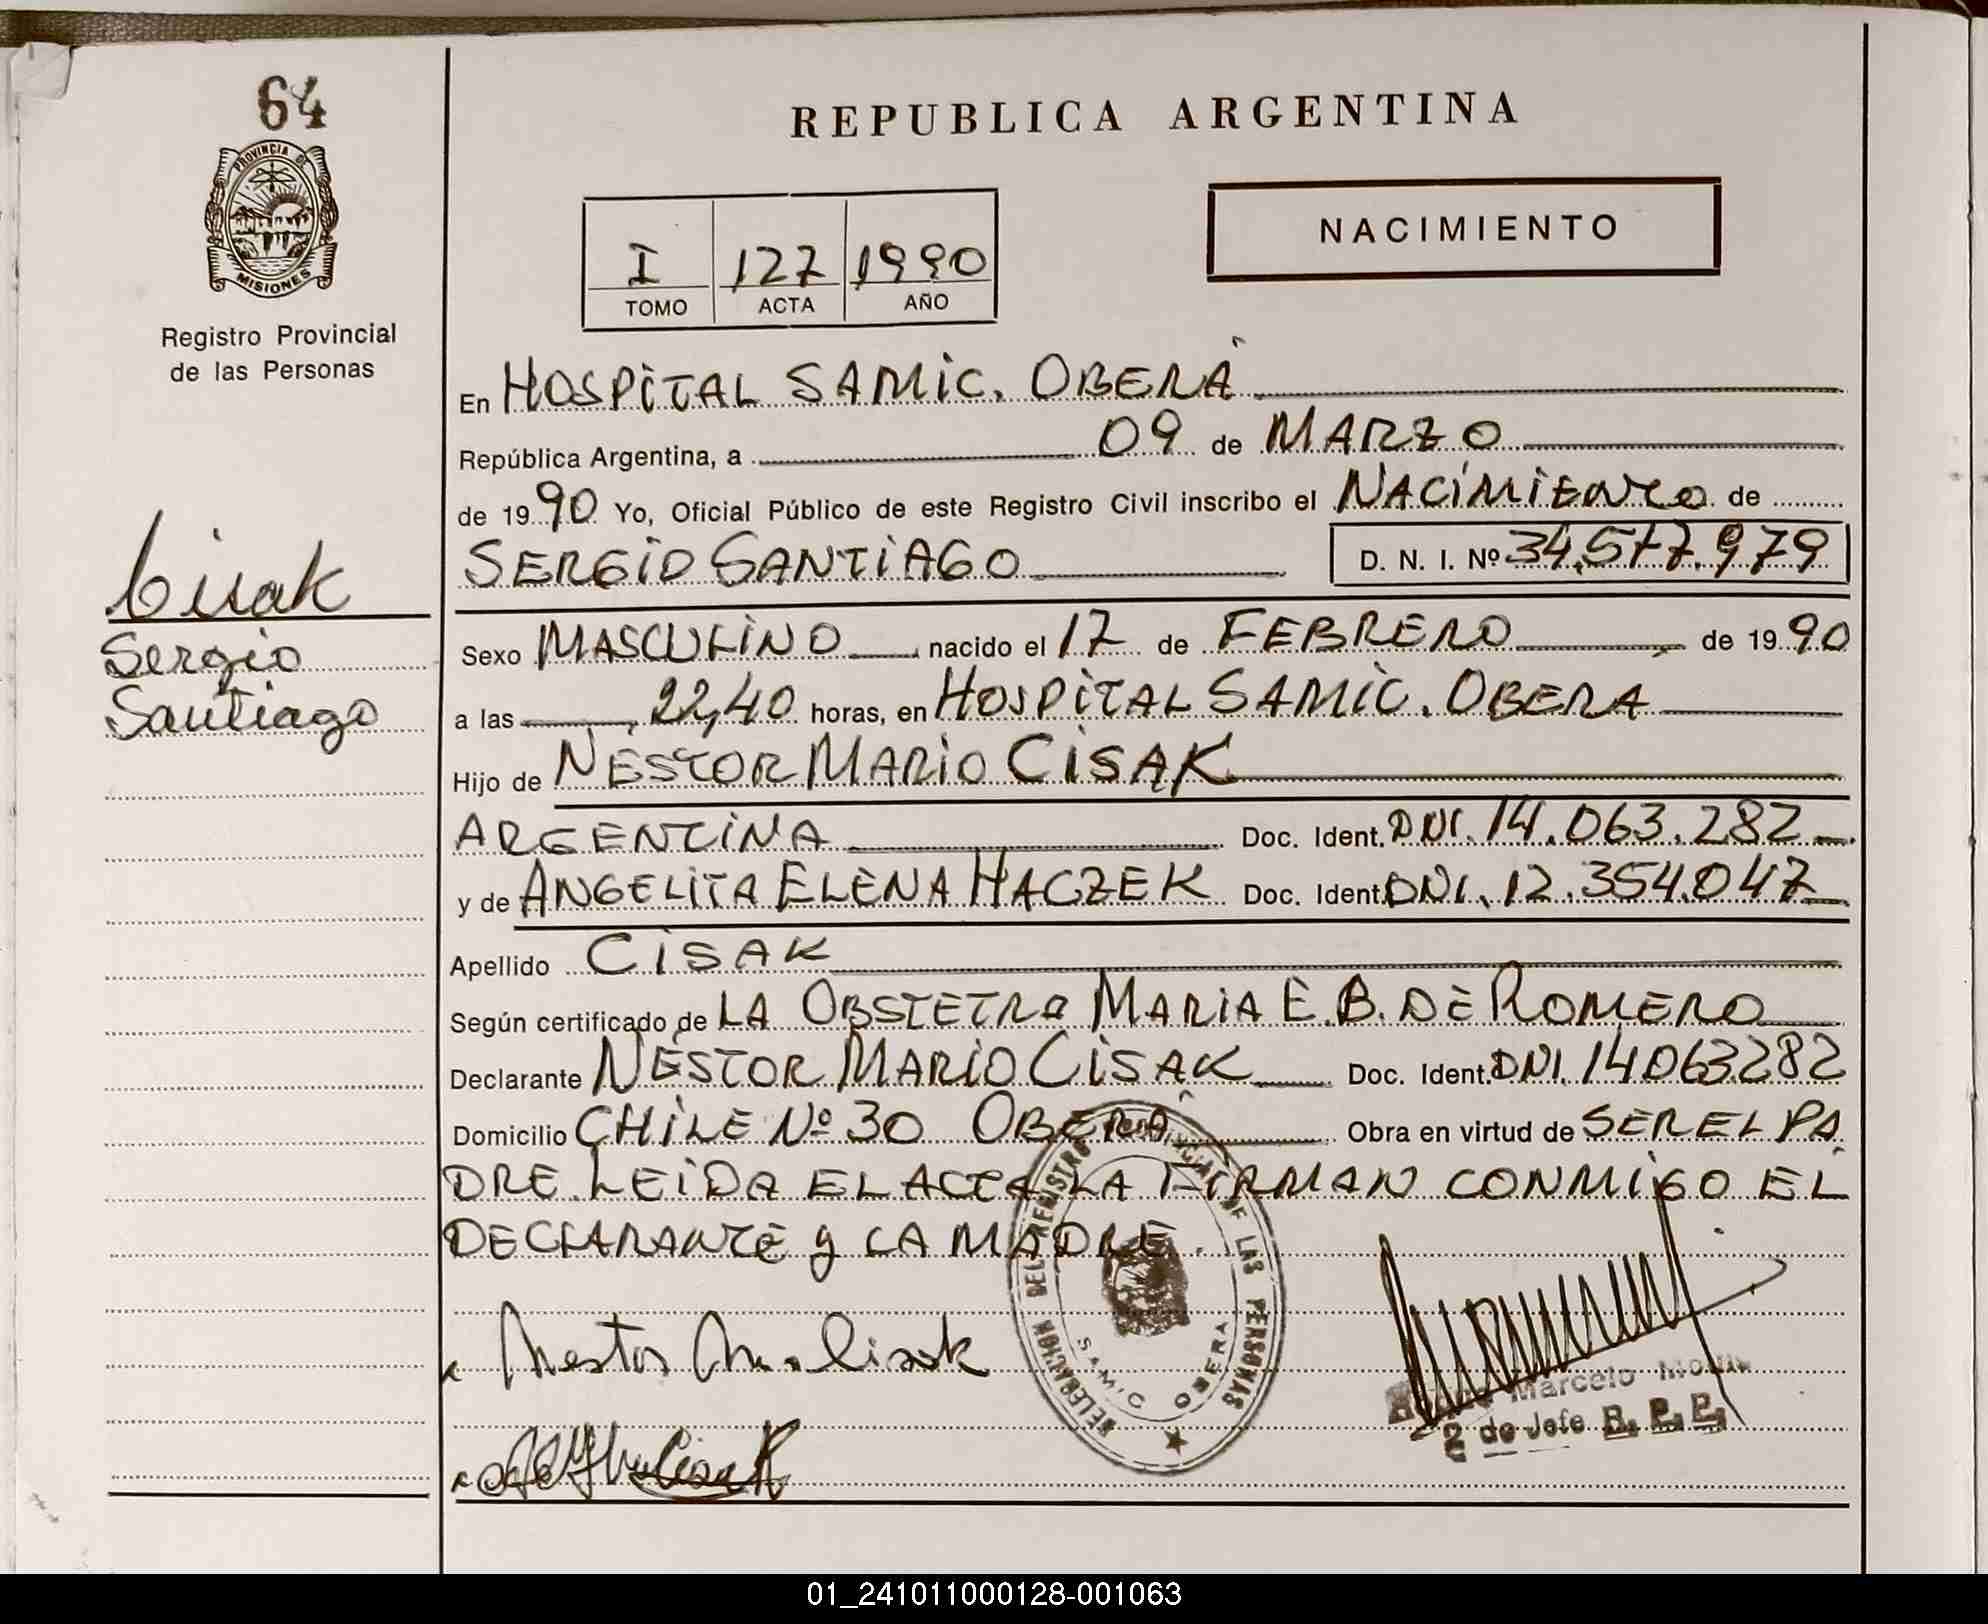 64
PROVINCIA DE
MISIONES
Registro Provincial
de las Personas
Cisak
Sergio
Santiago
REPUBLICA ARGENTINA
NACIMIENTO
I 127 1990
TOMO ACTA AÑO
En HOSPITAL SAMIC. OBERÁ
República Argentina, a 09 de MARZO
de 1990 Yo, Oficial Público de este Registro Civil inscribo el NACIMIENTO de
SERGIO SANTIAGO D. N. I. Nº 34.577.979
Sexo MASCULINO nacido el 17 de FEBRERO de 1990
a las 22,40 horas, en HOSPITAL SAMIC. OBERA
Hijo de NESTOR MARIO CISAK
ARGENTINA Doc. Ident. DNI. 14.063.282
y de ANGELITA ELENA HACZEK Doc. Ident. DNI. 12.354.047
Apellido CISAK
Según certificado de LA OBSTETRA MARIA E. B. DE ROMERO
Declarante NESTOR MARIO CISAK Doc. Ident. DNI. 14063282
Domicilio CHILE Nº 30 OBERÁ Obra en virtud de SER EL PA
DRE. LEIDA EL ACTA LA FIRMAN CONMIGO EL
DECLARANTE y LA MADRE.
DELEGACION DEL REGISTRO PROVINCIAL DE LAS PERSONAS
SAMIC OBERA
Nestor Cisak
Marcelo
2 do Jefe R. P. P.
Cisak
01_241011000128-001063